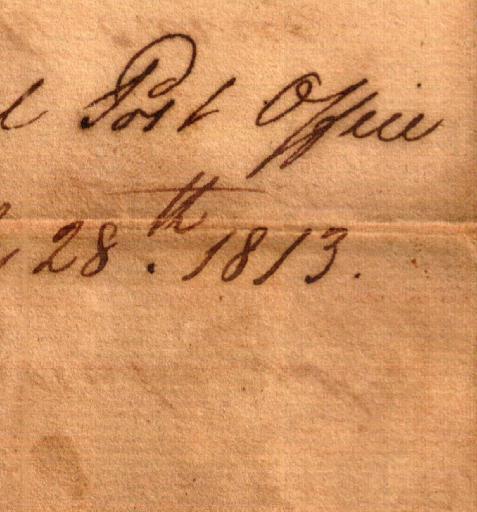 l Post Office
28.th 1813.